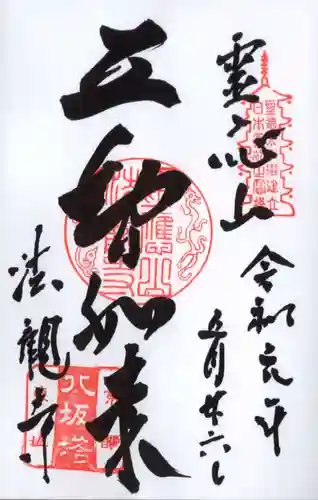 靈応山
令和元年
五月廿六日
五智如来
法觀寺
八坂塔